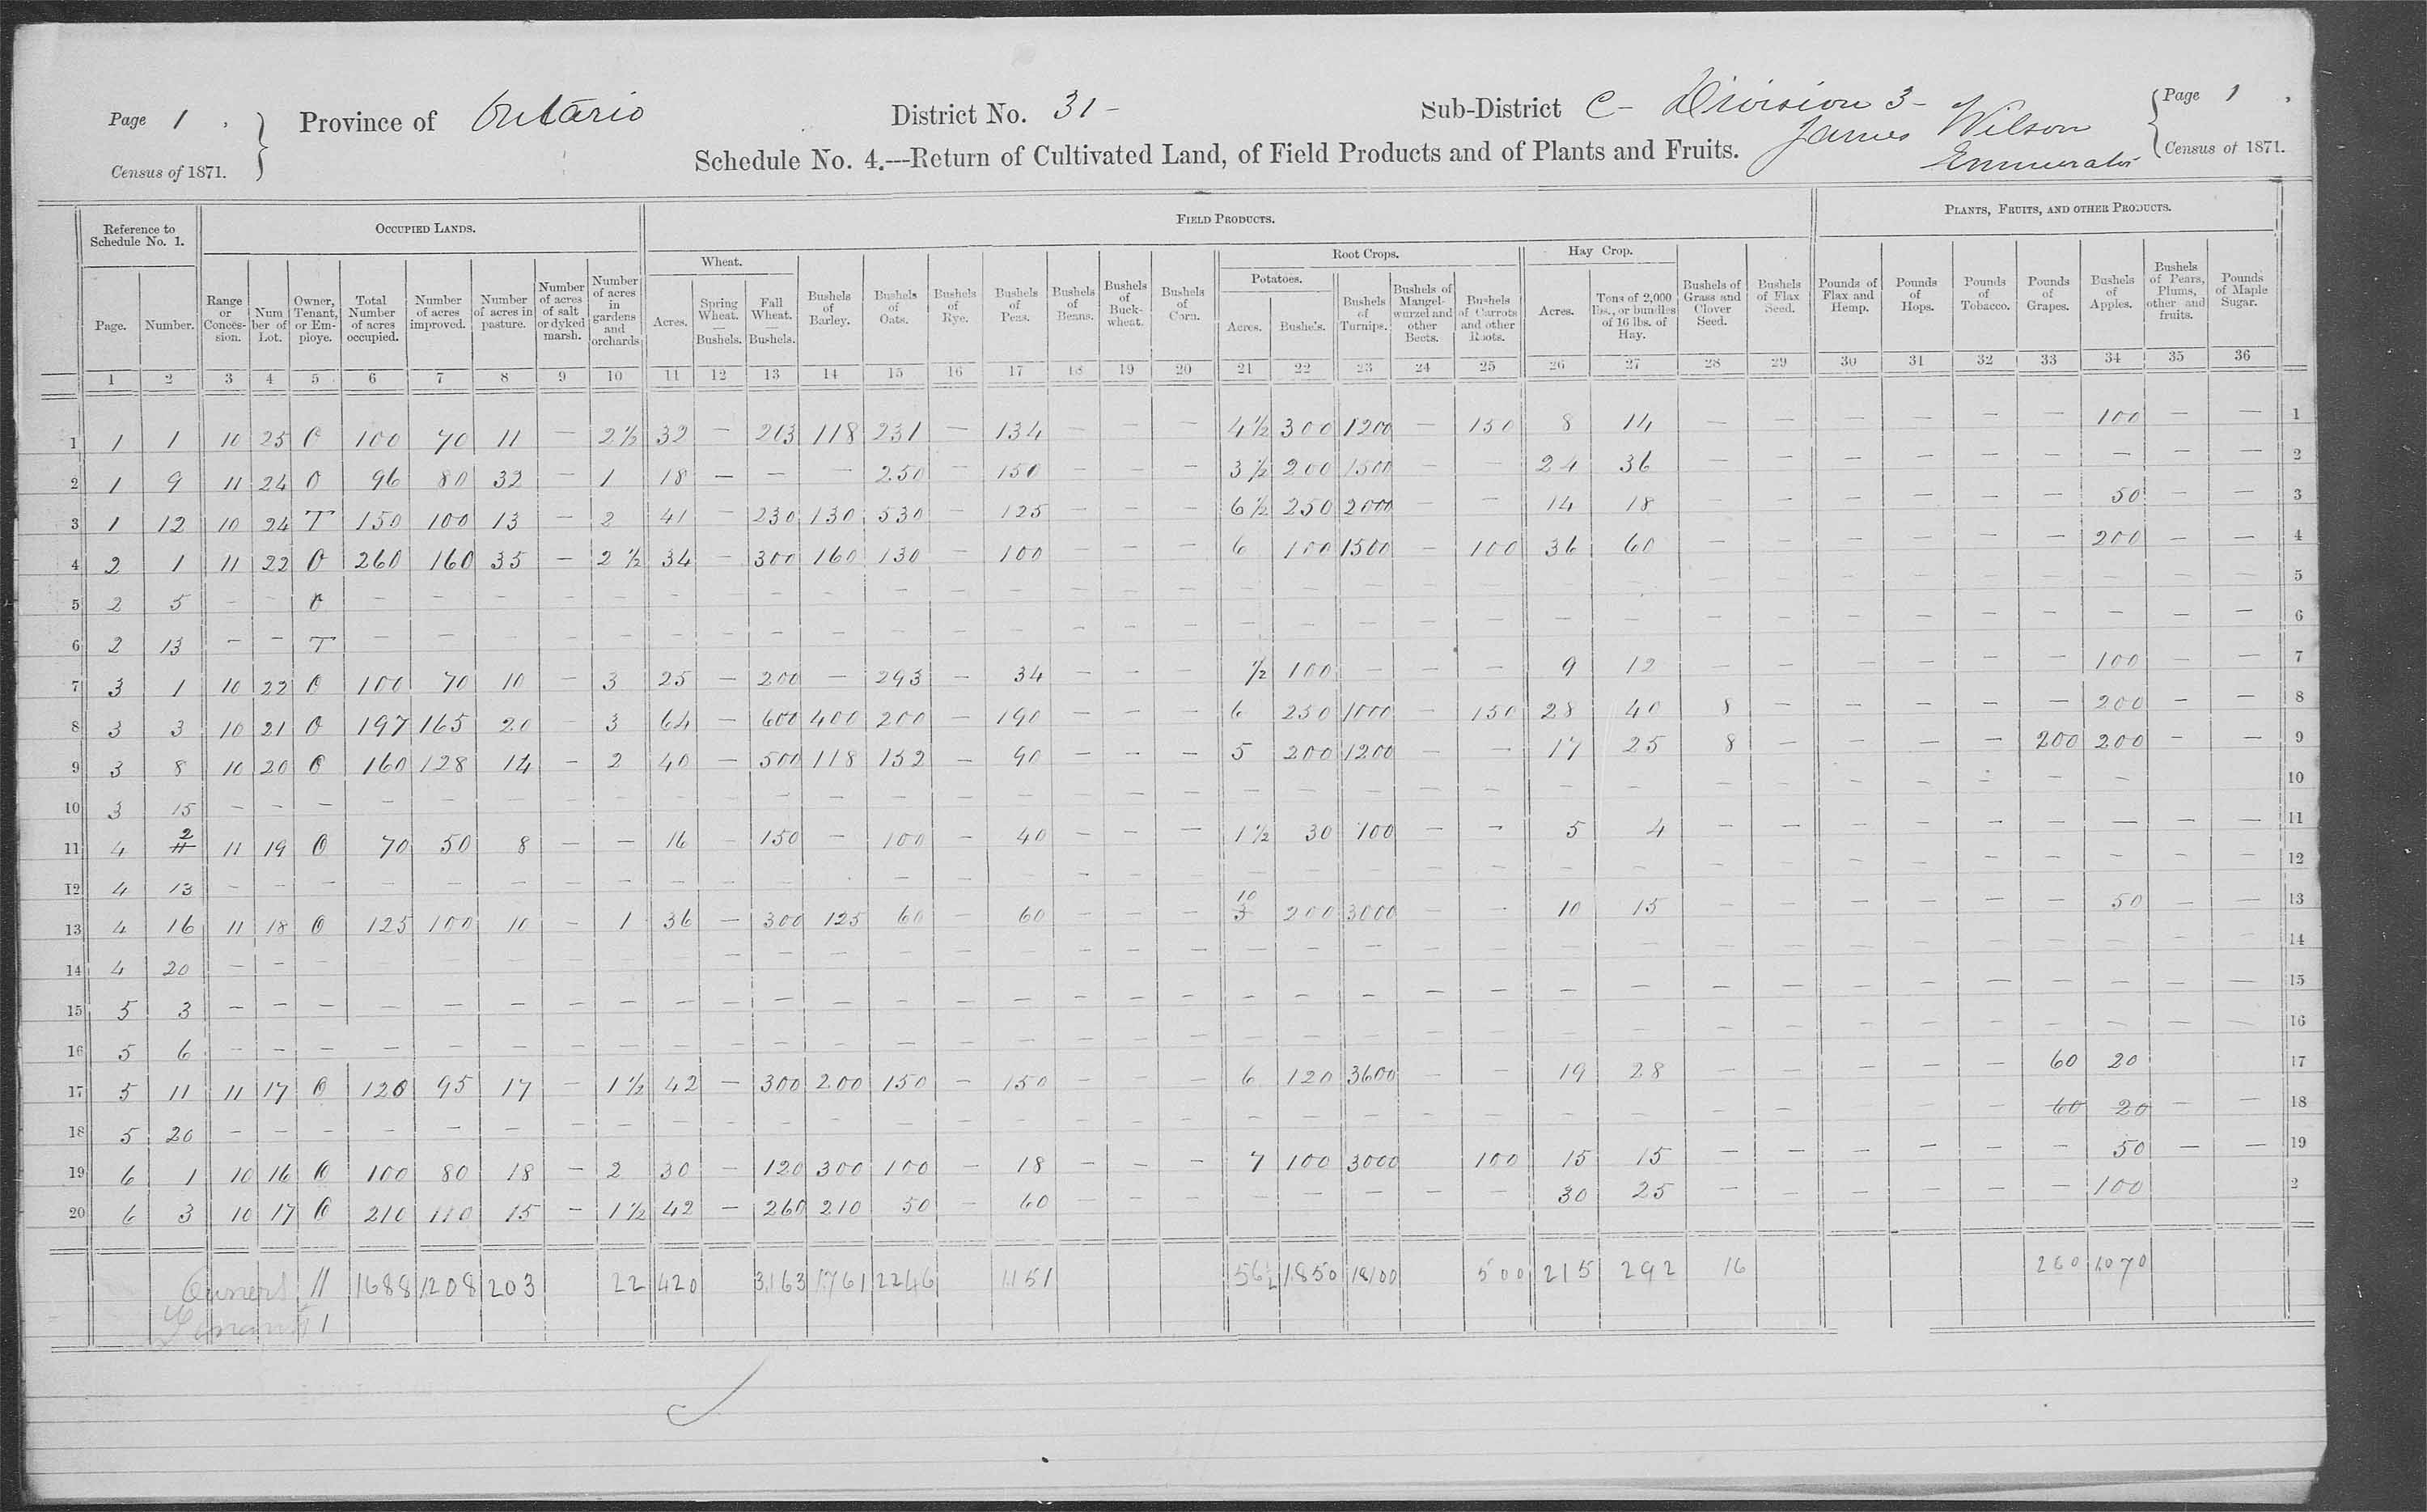 Page 1. Province of Ontario District No. 31- Sub-District C- Division 3- Page 1.
Census of 1871. Schedule No. 4.---Return of Cultivated Land, of Field Products and of Plants and Fruits. James Wilson Enumerator Census of 1871.
Reference to Schedule No. 1. OCCUPIED LANDS. FIELD PRODUCTS. PLANTS, FRUITS, AND OTHER PRODUCTS.
Wheat. Root Crops. Hay Crop.
Potatoes.
Page. Number. Range or Conces-sion. Num ber of Lot. Owner, Tenant, or Em-ploye. Total Number of acres occupied. Number of acres improved. Number of acres in pasture. Number of acres of salt or dyked marsh. Number of acres in gardens and orchards Acres. Spring Wheat. — Bushels. Fall Wheat. — Bushels. Bushels of Barley. Bushels of Oats. Bushels of Rye. Bushels of Peas. Bushels of Beans. Bushels of Buck-wheat. Bushels of Corn. Acres. Bushe's. Bushels of Turnips. Bushels of Mangel-wurzel and other Beets. Bushels of Carrots and other Roots. Acres. Tons of 2,000 lbs., or bundles of 16 lbs. of Hay. Bushels of Grass and Clover Seed. Bushels of Flax Seed. Pounds of Flax and Hemp. Pounds of Hops. Pounds of Tobacco. Pounds of Grapes. Bushels of Apples. Bushels of Pears, Plums, other and fruits. Pounds of Maple Sugar.
1 2 3 4 5 6 7 8 9 10 11 12 13 14 15 16 17 18 19 20 21 22 23 24 25 26 27 28 29 30 31 32 33 34 35 36
1 1 1 10 25 O 100 70 11 — 2½ 32 — 203 118 231 — 134 — — — 4½ 300 1200 — 150 8 14 — — — — — — 100 — — 1
2 1 9 11 24 O 96 80 32 — 1 18 — — — 250 — 150 — — — 3½ 200 1500 — — 24 36 — — — — — — — — — 2
3 1 12 10 24 T 150 100 13 — 2 41 — 230 130 530 — 125 — — — 6½ 250 2000 — — 14 18 — — — — — — 50 — — 3
4 2 1 11 22 O 260 160 35 — 2½ 34 — 300 160 130 — 100 — — — 6 100 1500 — 100 36 60 — — — — — — 200 — — 4
5 2 5 — — O — — — — — — — — — — — — — — — — — — — — — — — — — — — — — — — 5
6 2 13 — — T — — — — — — — — — — — — — — — — — — — — — — — — — — — — — — — 6
7 3 1 10 22 O 100 70 10 — 3 25 — 200 — 293 — 34 — — — ½ 100 — — — 9 12 — — — — — — 100 — — 7
8 3 3 10 21 O 197 165 20 — 3 64 — 600 400 200 — 190 — — — 6 250 1000 — 150 28 40 8 — — — — — 200 — — 8
9 3 8 10 20 O 160 128 14 — 2 40 — 500 118 152 — 90 — — — 5 200 1200 — — 17 25 8 — — — — 200 200 — — 9
10 3 15 — — — — — — — — — — — — — — — — — — — — — — — — — — — — — — — — 10
11 4 2 11 11 19 O 70 50 8 — — 16 — 150 — 100 — 40 — — — 1½ 30 100 — — 5 4 — — — — — — — — — 11
12 4 13 — — — — — — — — — — — — — — — — — — — — — — — — — — — — — — — — — — 12
13 4 16 11 18 O 125 100 10 — 1 36 — 300 125 60 — 60 — — — 10 3 200 3000 — — 10 15 — — — — — — 50 — — 13
14 4 20 — — — — — — — — — — — — — — — — — — — — — — — — — — — — — — — — — 14
15 5 3 — — — — — — — — — — — — — — — — — — — — — — — — — — — — — — — — — — 15
16 5 6 — — — — — — — — — — — — — — — — — — — — — — — — — — — — — — — — — — 16
17 5 11 11 17 O 120 95 17 — 1½ 42 — 300 200 150 — 150 — — — 6 120 3600 — — 19 28 — — — — — 60 20 17
18 5 20 — — — — — — — — — — — — — — — — — — — — — — — — — — — — — — 60 20 — — 18
19 6 1 10 16 O 100 80 18 — 2 30 — 120 300 100 — 18 — — — 7 100 3000 100 15 15 — — — — — — 50 — — 19
20 6 3 10 17 O 210 110 15 — 1½ 42 — 260 210 50 — 60 — — — — — — — — 30 25 — — — — — — 100 2
Owners 11 1688 1208 203 22 420 3163 1761 2246 1151 56½ 1850 18100 500 215 292 16 260 1070
Tenants 1